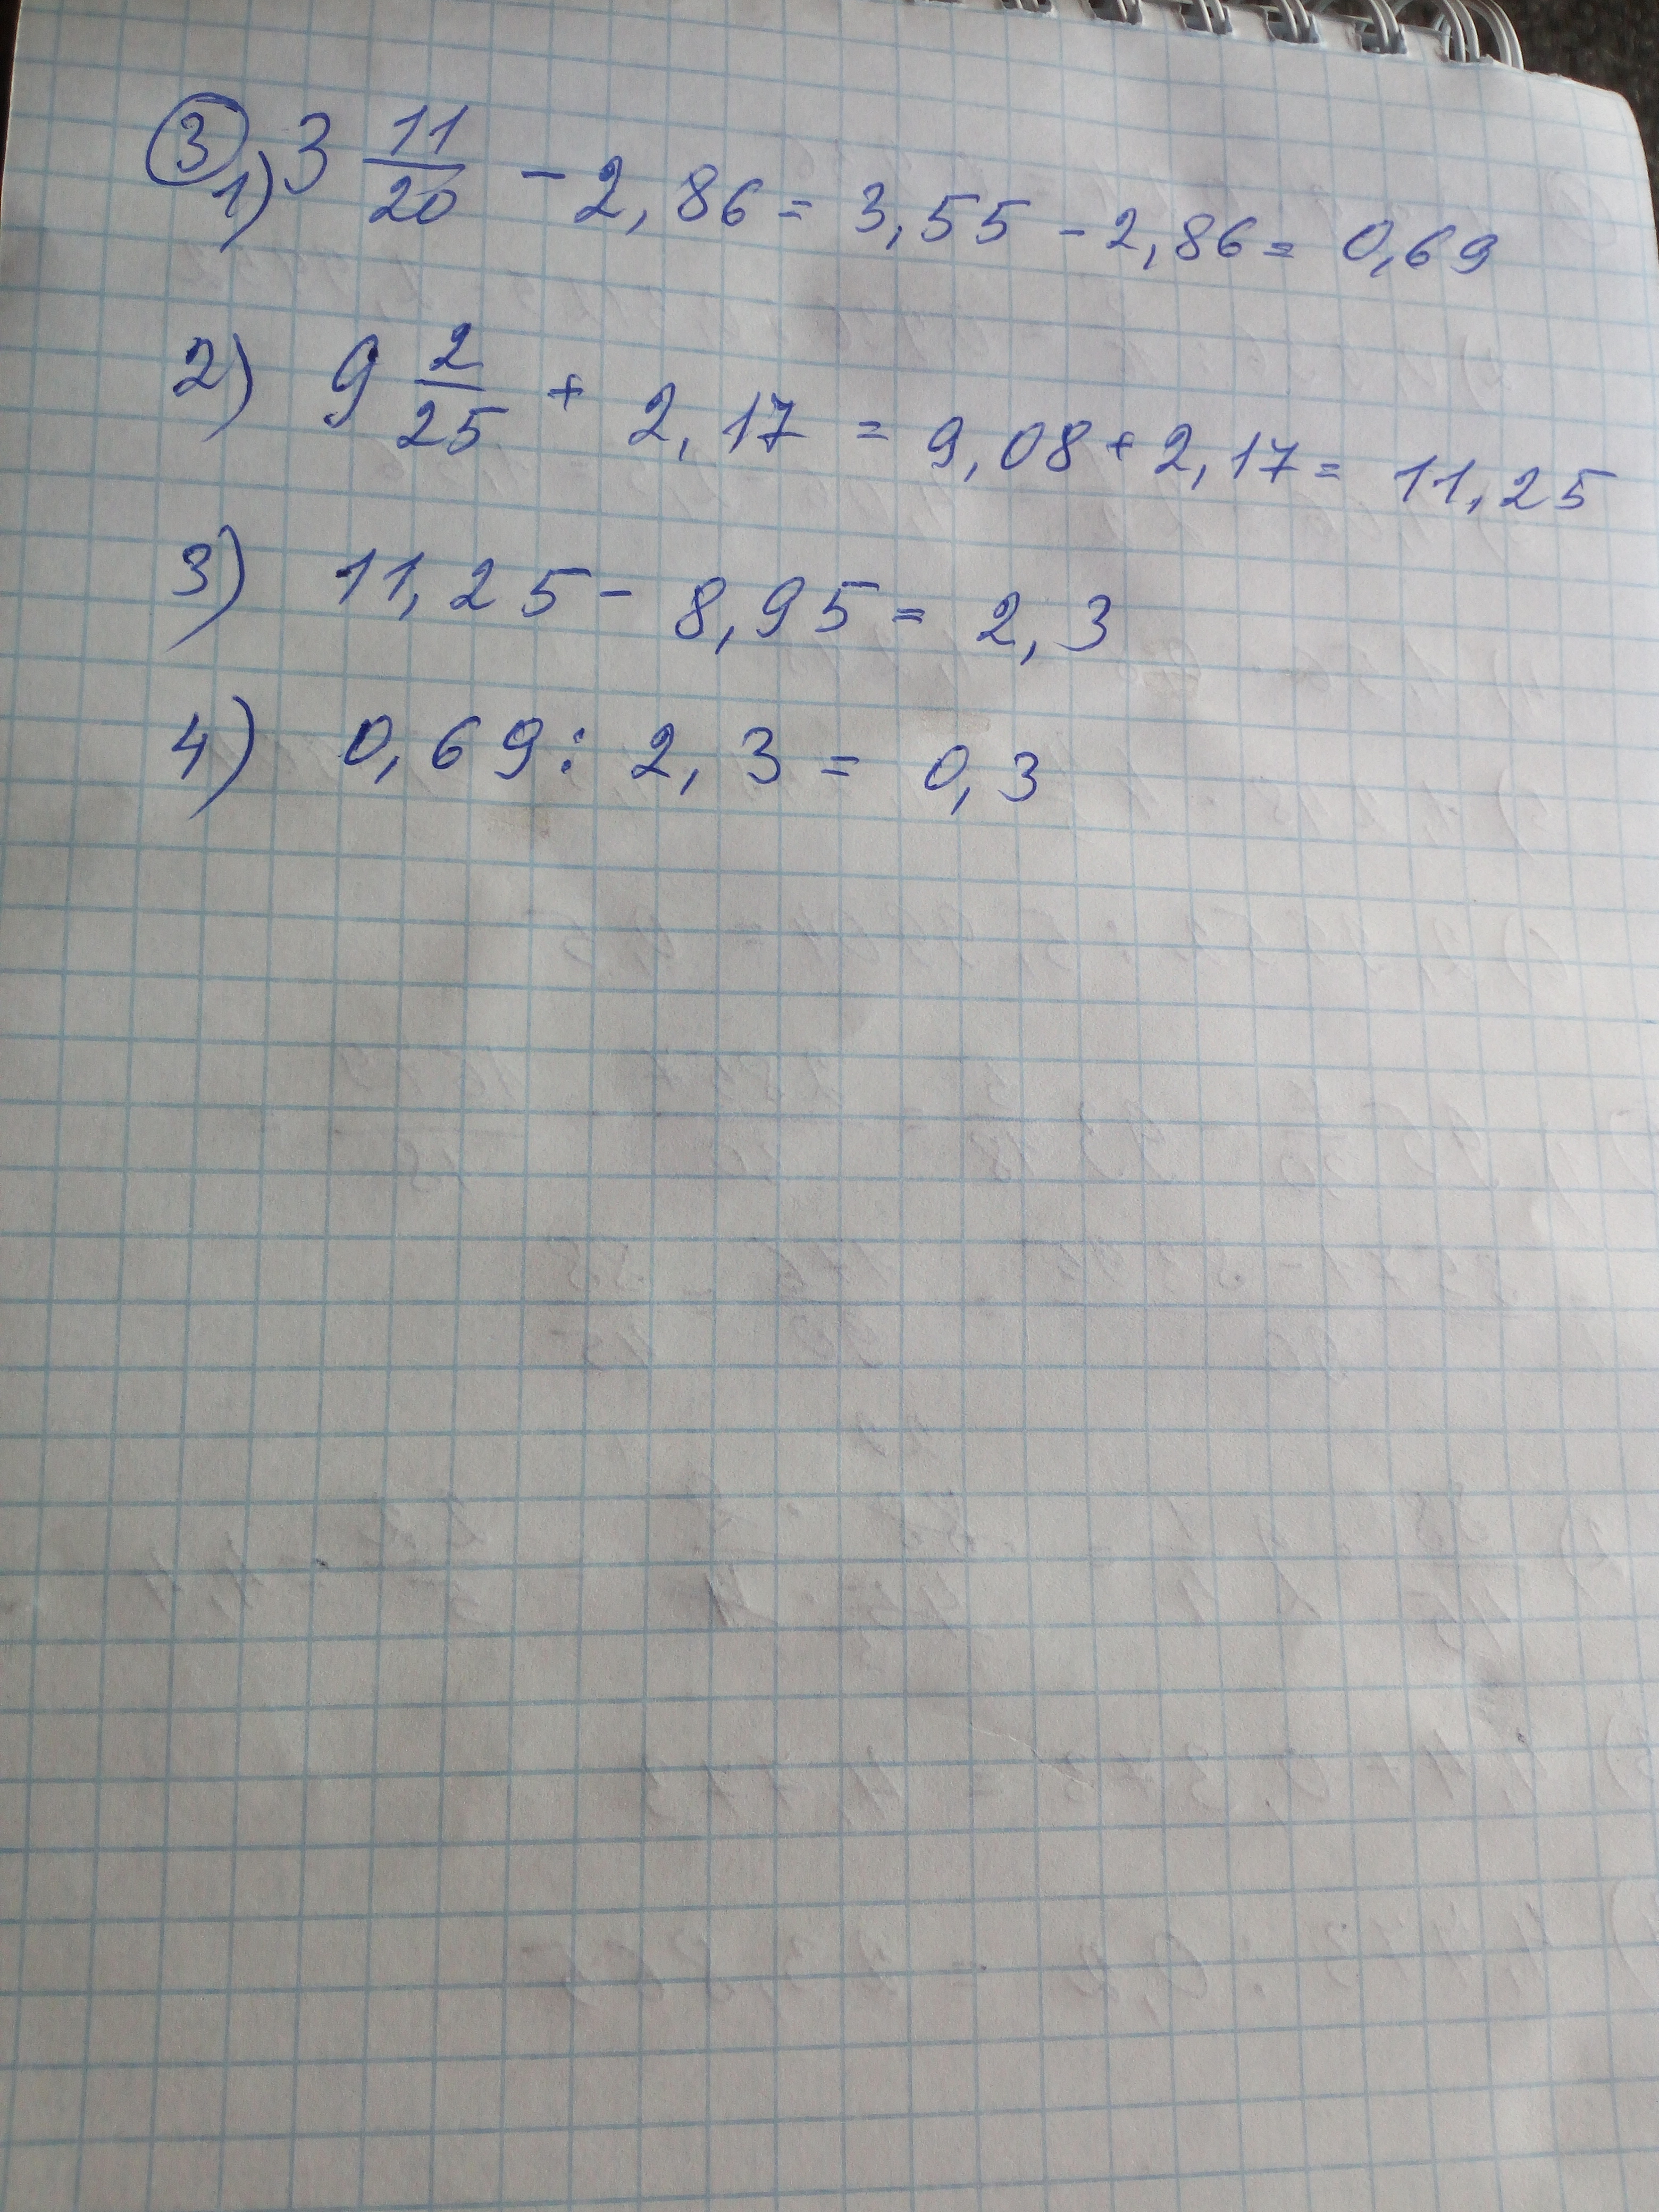 ③ 1) 3 11/20 - 2,86 = 3,55 - 2,86 = 0,69
2) 9 2/25 + 2,17 = 9,08 + 2,17 = 11,25
3) 11,25 - 8,95 = 2,3
4) 0,69 : 2,3 = 0,3